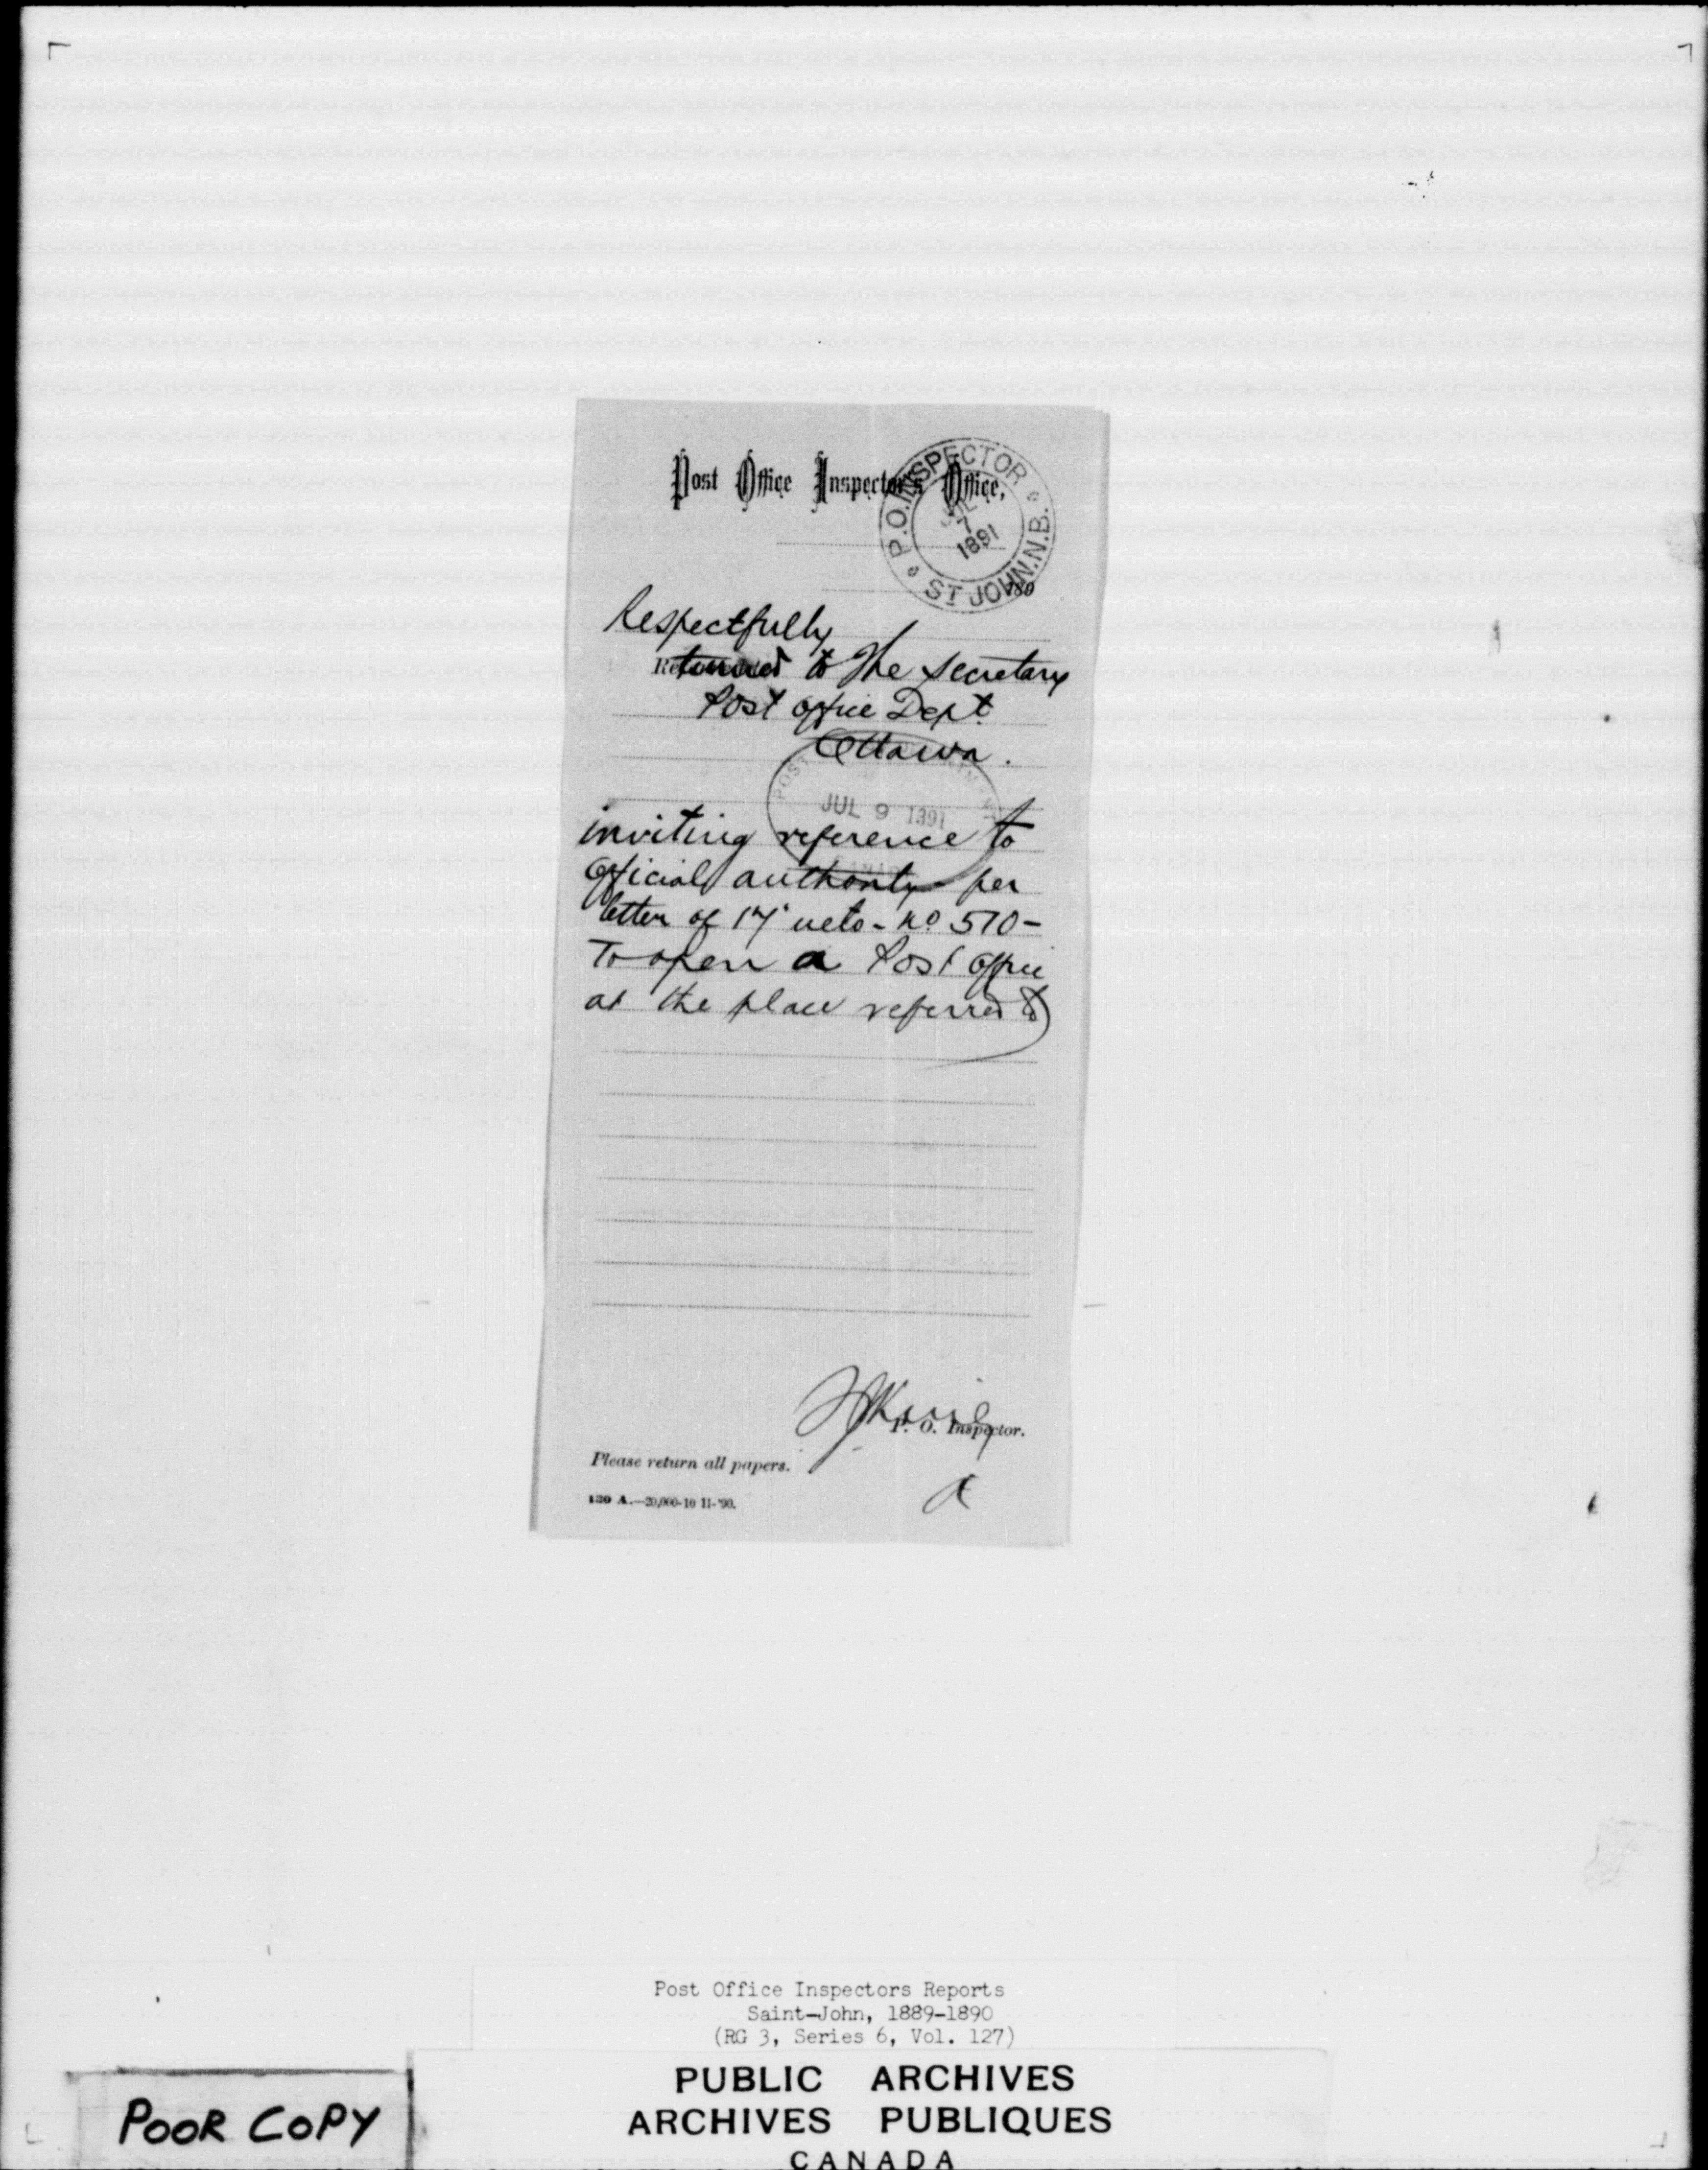 Post Office Inspector's Office,
P.O. INSPECTOR
JUL
7
1891
ST JOHN. N.B.
189
Respectfully
Returned to The Secretary
Post Office Dept
Ottawa.
POST
JUL 9 1891
CANADA
inviting reference to
official authority per
letter of 17 ulto - No 510 -
To open a Post Office
at the place referred to
P. O. Inspector.
Please return all papers.
130 A.—20,000-10 11-'90.
Post Office Inspectors Reports
Saint-John, 1889-1890
(RG 3, Series 6, Vol. 127)
PUBLIC ARCHIVES
ARCHIVES PUBLIQUES
CANADA
POOR COPY